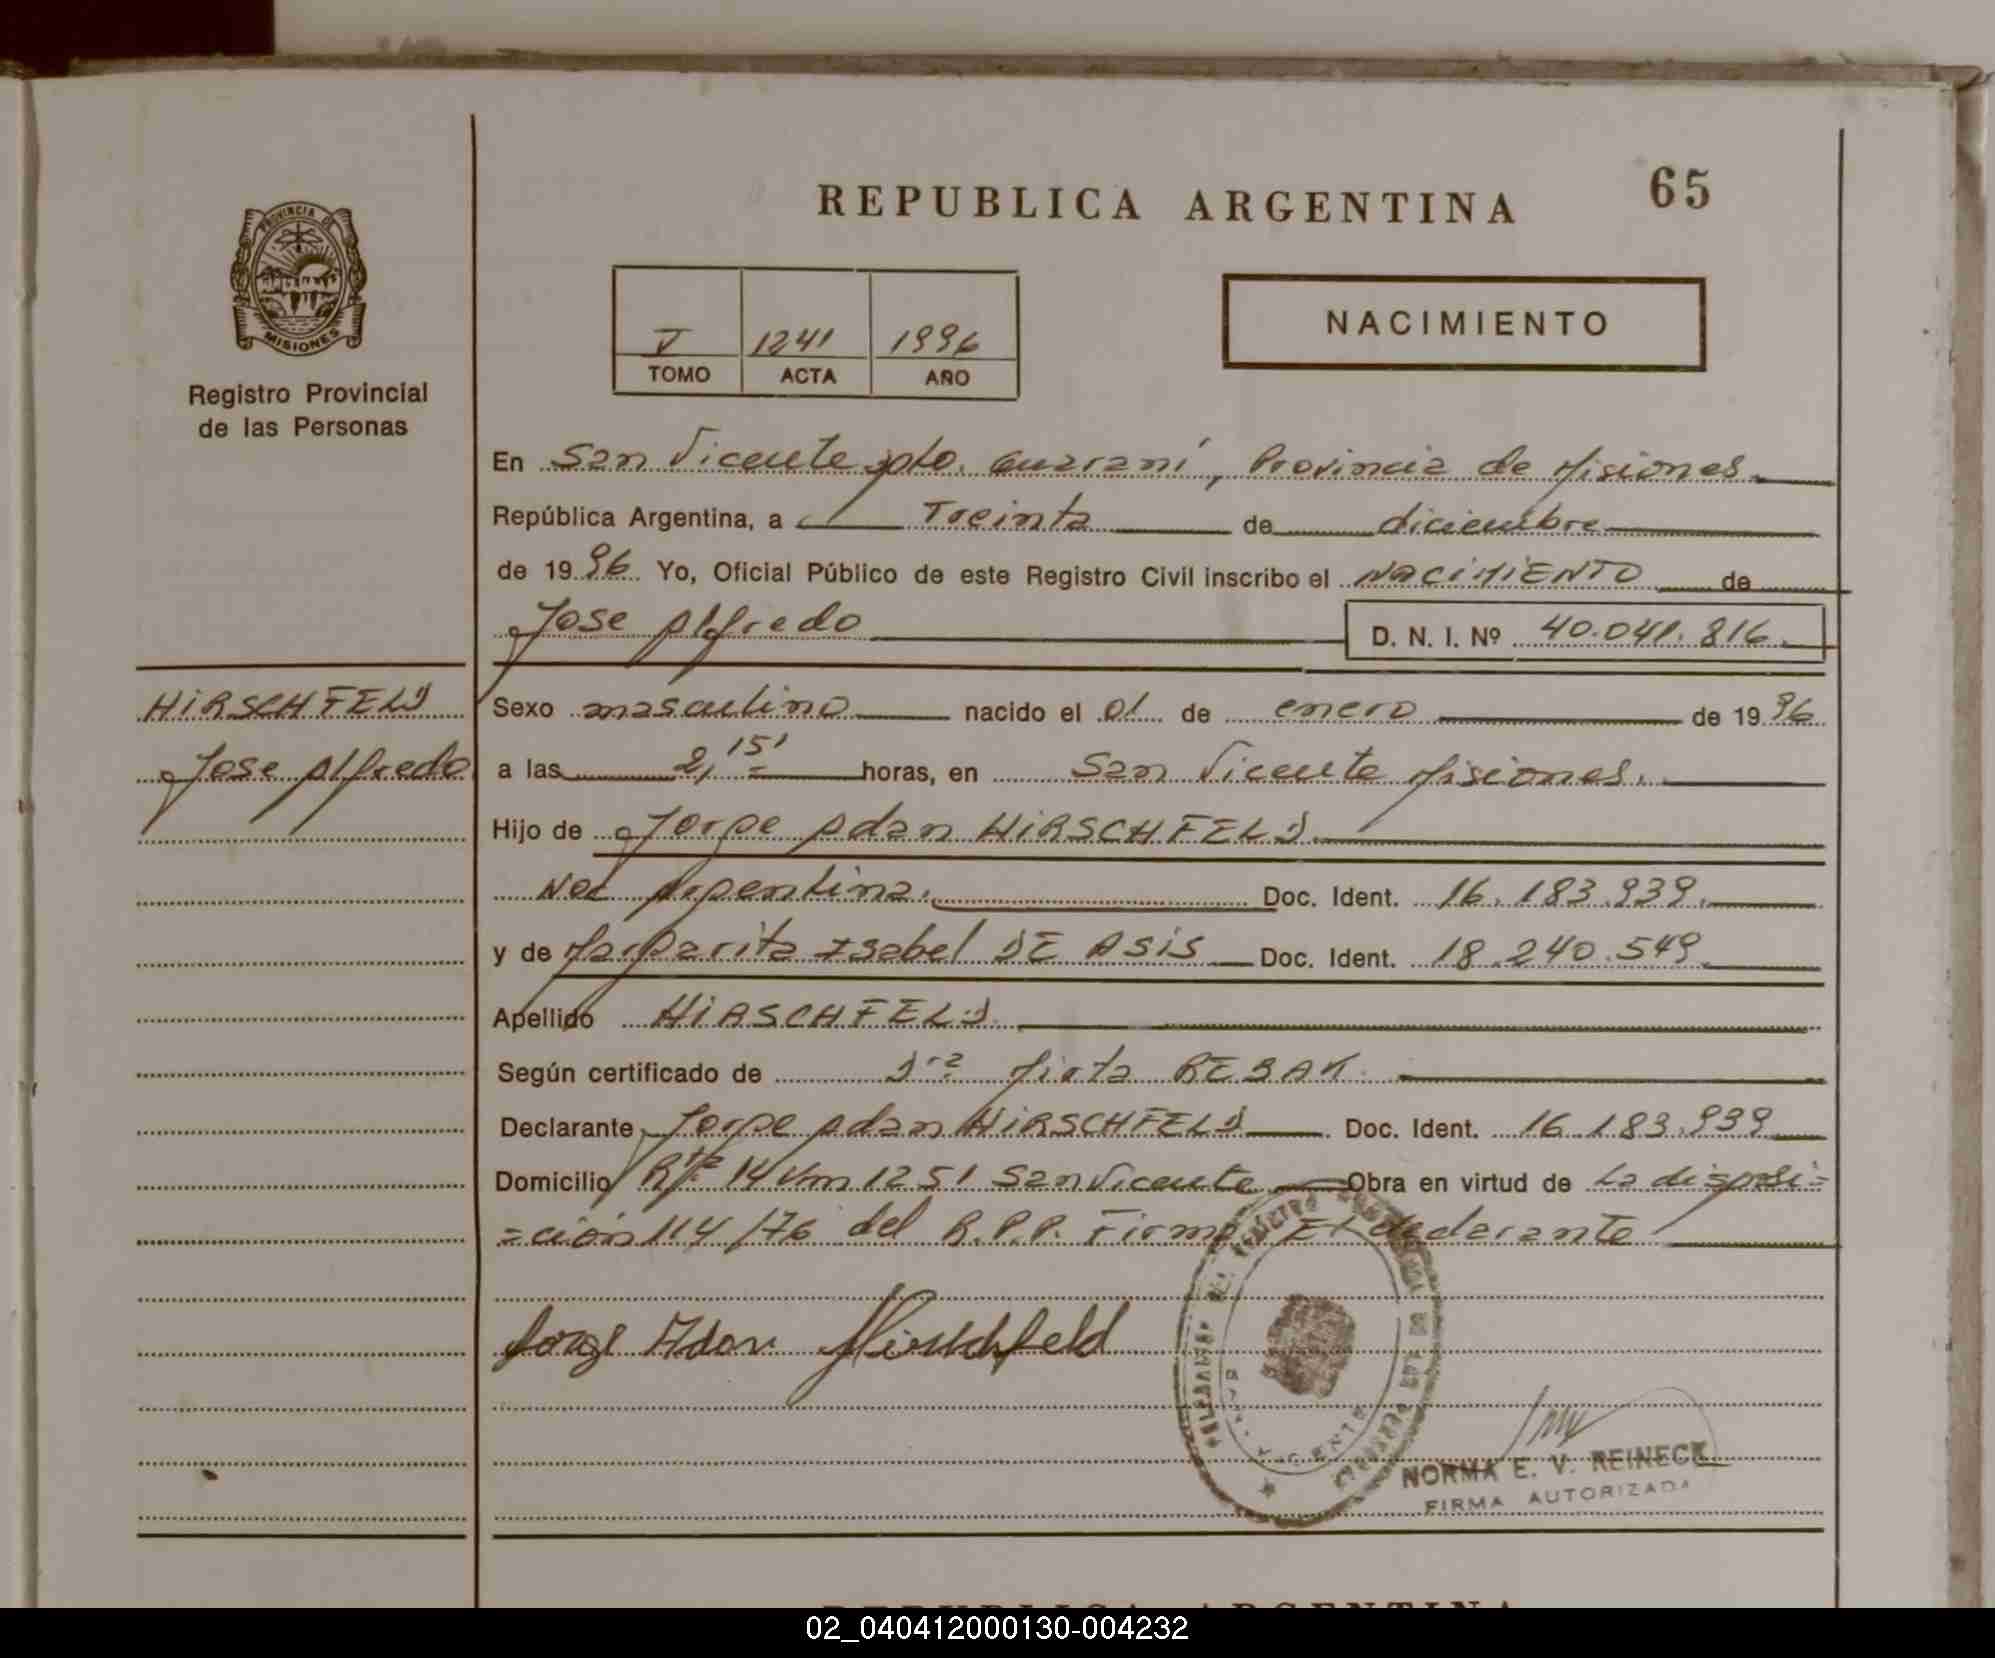 REPUBLICA ARGENTINA
65
PROVINCIA DE
MISIONES
Registro Provincial
de las Personas
V 1241 1996
TOMO ACTA AÑO
NACIMIENTO
En San Vicente Dpto. Guaraní, Provincia de Misiones
República Argentina, a Treinta de diciembre
de 1996 Yo, Oficial Público de este Registro Civil inscribo el NACIMIENTO de
Jose Alfredo D. N. I. Nº 40.041.816.
HIRSCHFELD
Jose Alfredo
Sexo masculino nacido el 01 de enero de 1996
a las 2,15' horas, en San Vicente Misiones.
Hijo de Jorge Adan HIRSCHFELD.
Nac Argentina. Doc. Ident. 16.183.939.
y de Margarita Isabel DE ASIS Doc. Ident. 18.240.549.
Apellido HIRSCHFELD.
Según certificado de Dra Mirta
Declarante Jorge Adan HIRSCHFELD Doc. Ident. 16.183.939
Domicilio Rta 14 Km 1251 San Vicente Obra en virtud de La disposi=
=ción 114/76 del R.P.P. Firma El declarante
Jorge Adan Hirschfeld
NORMA E. V. REINECK
FIRMA AUTORIZADA
REPUBLICA ARGENTINA
02_040412000130-004232